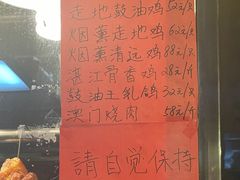 走地鼓油鸡52元/只
烟薰走地鸡62元/只
烟薰清远鸡88元/只
湛江骨香鸡28元/斤
鼓油王乳鸽32元/只
澳门烧肉 58元/斤
請自觉保持